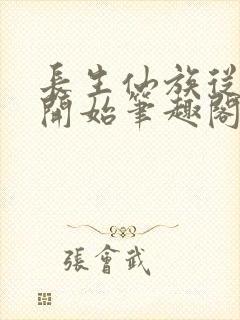 長生仙族從
開始筆趣閣
張會武